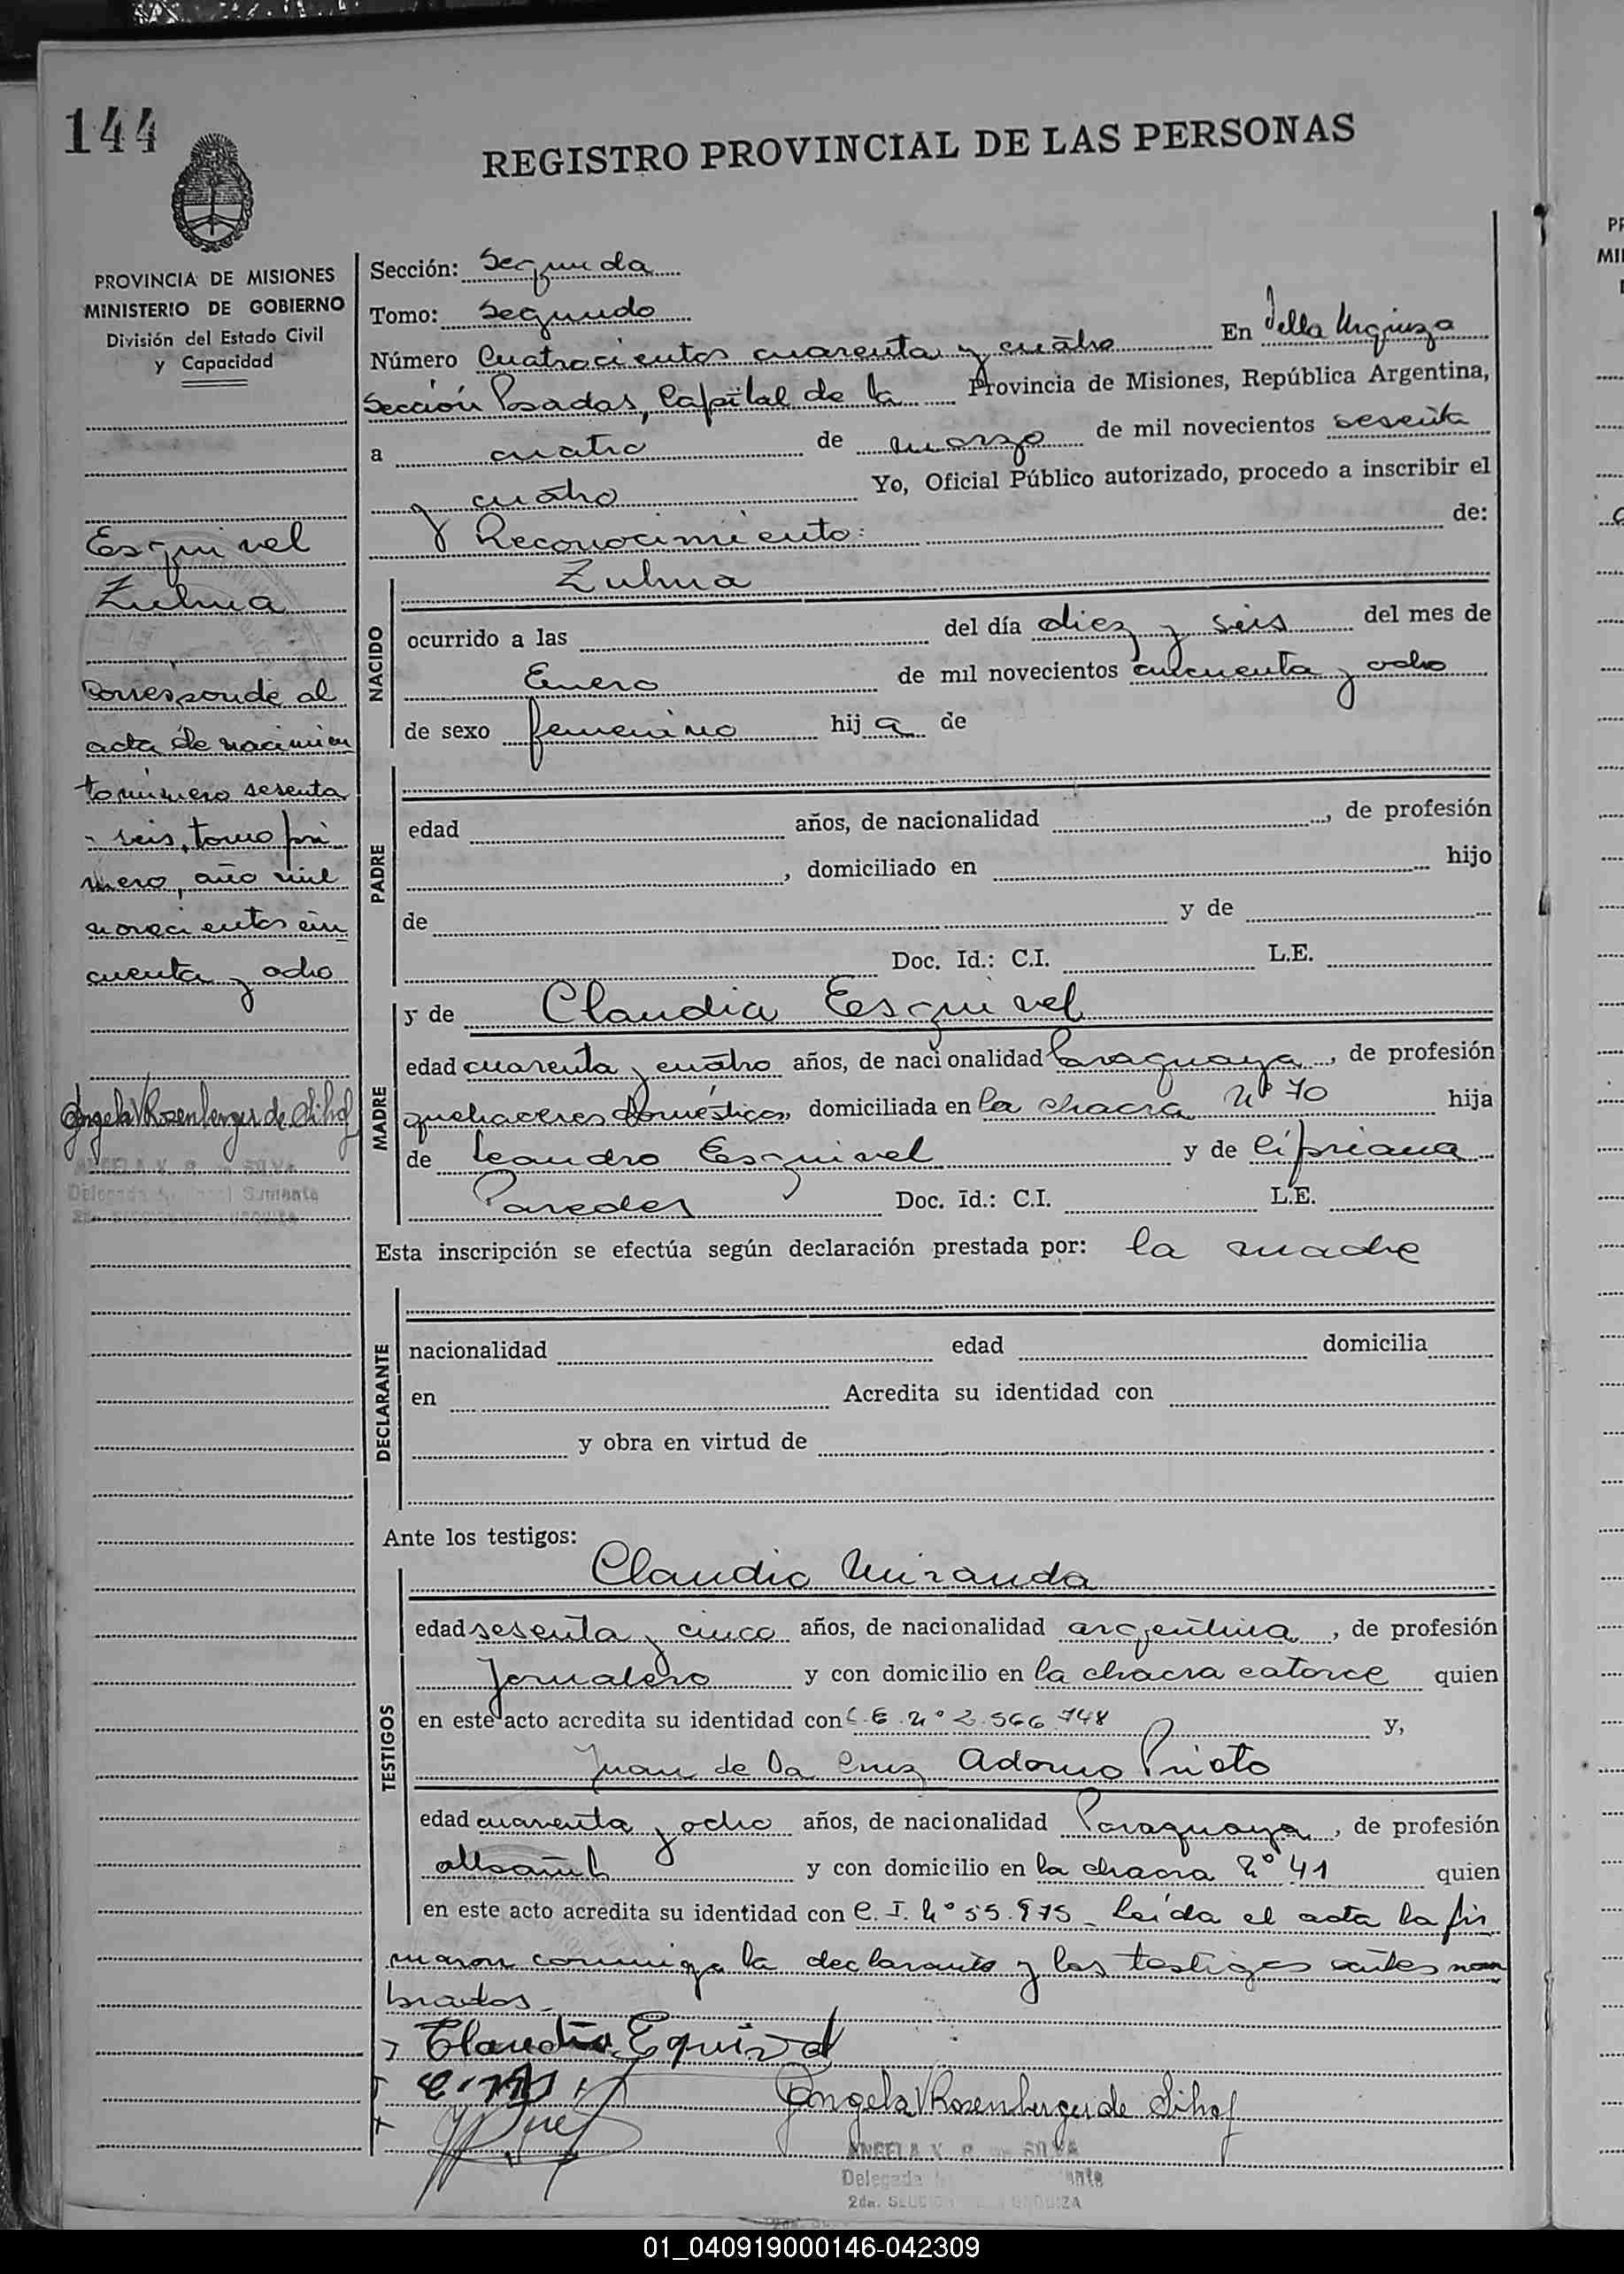 144
REGISTRO PROVINCIAL DE LAS PERSONAS
PROVINCIA DE MISIONES
MINISTERIO DE GOBIERNO
División del Estado Civil
y Capacidad
Esquivel
Zulma
Corresponde al
acta de nacimien
to número sesenta
y seis, tomo pri
mero, año mil
novecientos cin
cuenta y ocho
Angela V Rozenberger de Silva
ANGELA V. R. de SILVA
Delegada
Sección: Segunda
Tomo: Segundo
Número Cuatrocientos cuarenta y cuatro En Villa Urquiza
Sección Posadas, Capital de la Provincia de Misiones, República Argentina,
a cuatro de marzo de mil novecientos sesenta
y cuatro Yo, Oficial Público autorizado, procedo a inscribir el
Reconocimiento: de:
NACIDO
Zulma
ocurrido a las del día diez y seis del mes de
Enero de mil novecientos cincuenta y ocho
de sexo femenino hija de
PADRE
edad años, de nacionalidad , de profesión
, domiciliado en hijo
de y de
Doc. Id.: C.I. L.E.
MADRE
y de Claudia Esquivel
edad cuarenta y cuatro años, de nacionalidad Paraguaya, de profesión
quehaceres domésticos, domiciliada en la chacra Nº 70 hija
de Leandro Esquivel y de Cipriana
Paredes Doc. Id.: C.I. L.E.
Esta inscripción se efectúa según declaración prestada por: la madre
DECLARANTE
nacionalidad edad domicilia
en Acredita su identidad con
y obra en virtud de
Ante los testigos:
TESTIGOS
Claudio Miranda
edad sesenta y cinco años, de nacionalidad argentina, de profesión
Jornalero y con domicilio en la chacra catorce quien
en este acto acredita su identidad con Nº 2.566.748 y,
Juan de la Cruz Adorno Prieto
edad cuarenta y ocho años, de nacionalidad Paraguaya, de profesión
albañil y con domicilio en la chacra Nº 41 quien
en este acto acredita su identidad con C. I. Nº 55.975 - Leída el acta la fir
maron conmigo la declarante y los testigos antes nom
brados.-
Claudia Equivel
Angela V Rozenberger de Silva
ANGELA V. R. de SILVA
Delegada
2da. SECCION URQUIZA
01_040919000146-042309